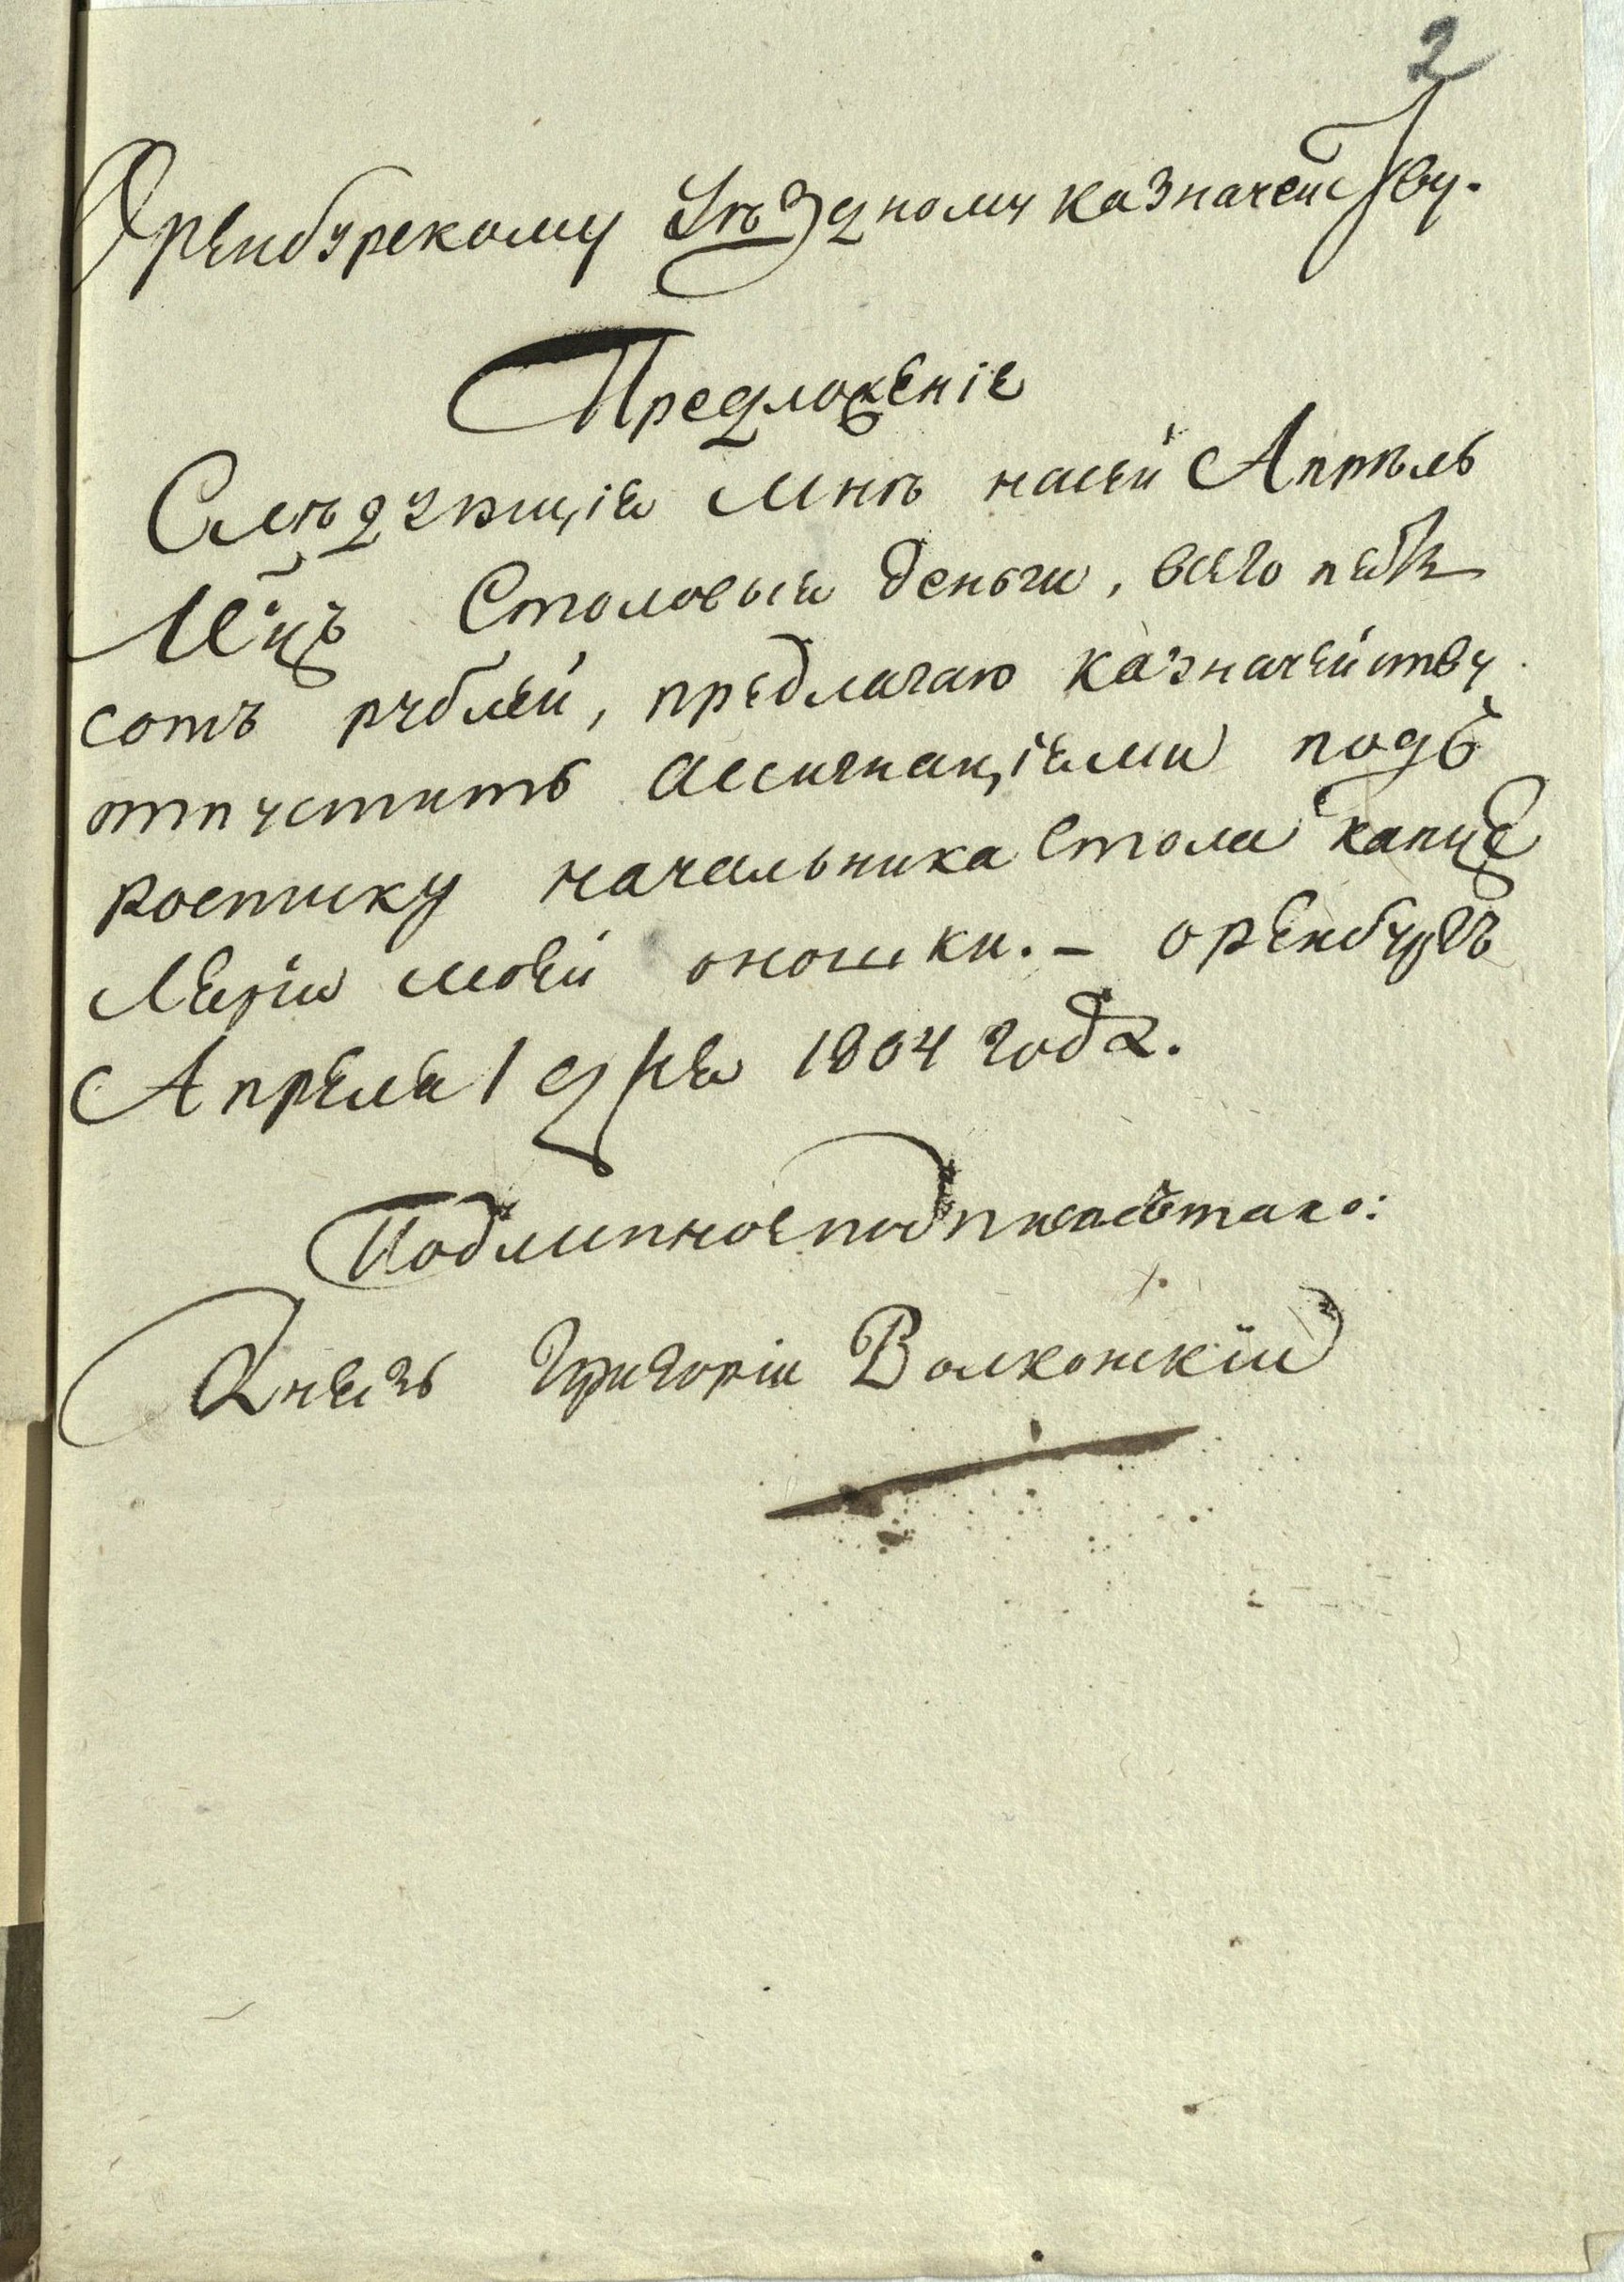 2
Оренбурскому Уѣздному казначейству.
Предложеніе
Слѣдующіе мнѣ насей Апрѣль
Мцъ Столовыя деньги, всего пять
сотъ рублей, предлагаю казначейству
отпустить ассигнаціями подъ
росписку начальника стола канце
леріи моей оношки. - оренбургъ
Апреля 1 дня 1804 года.
Подлинное подписалъ тако:
Князь Григоріи Волконскіи